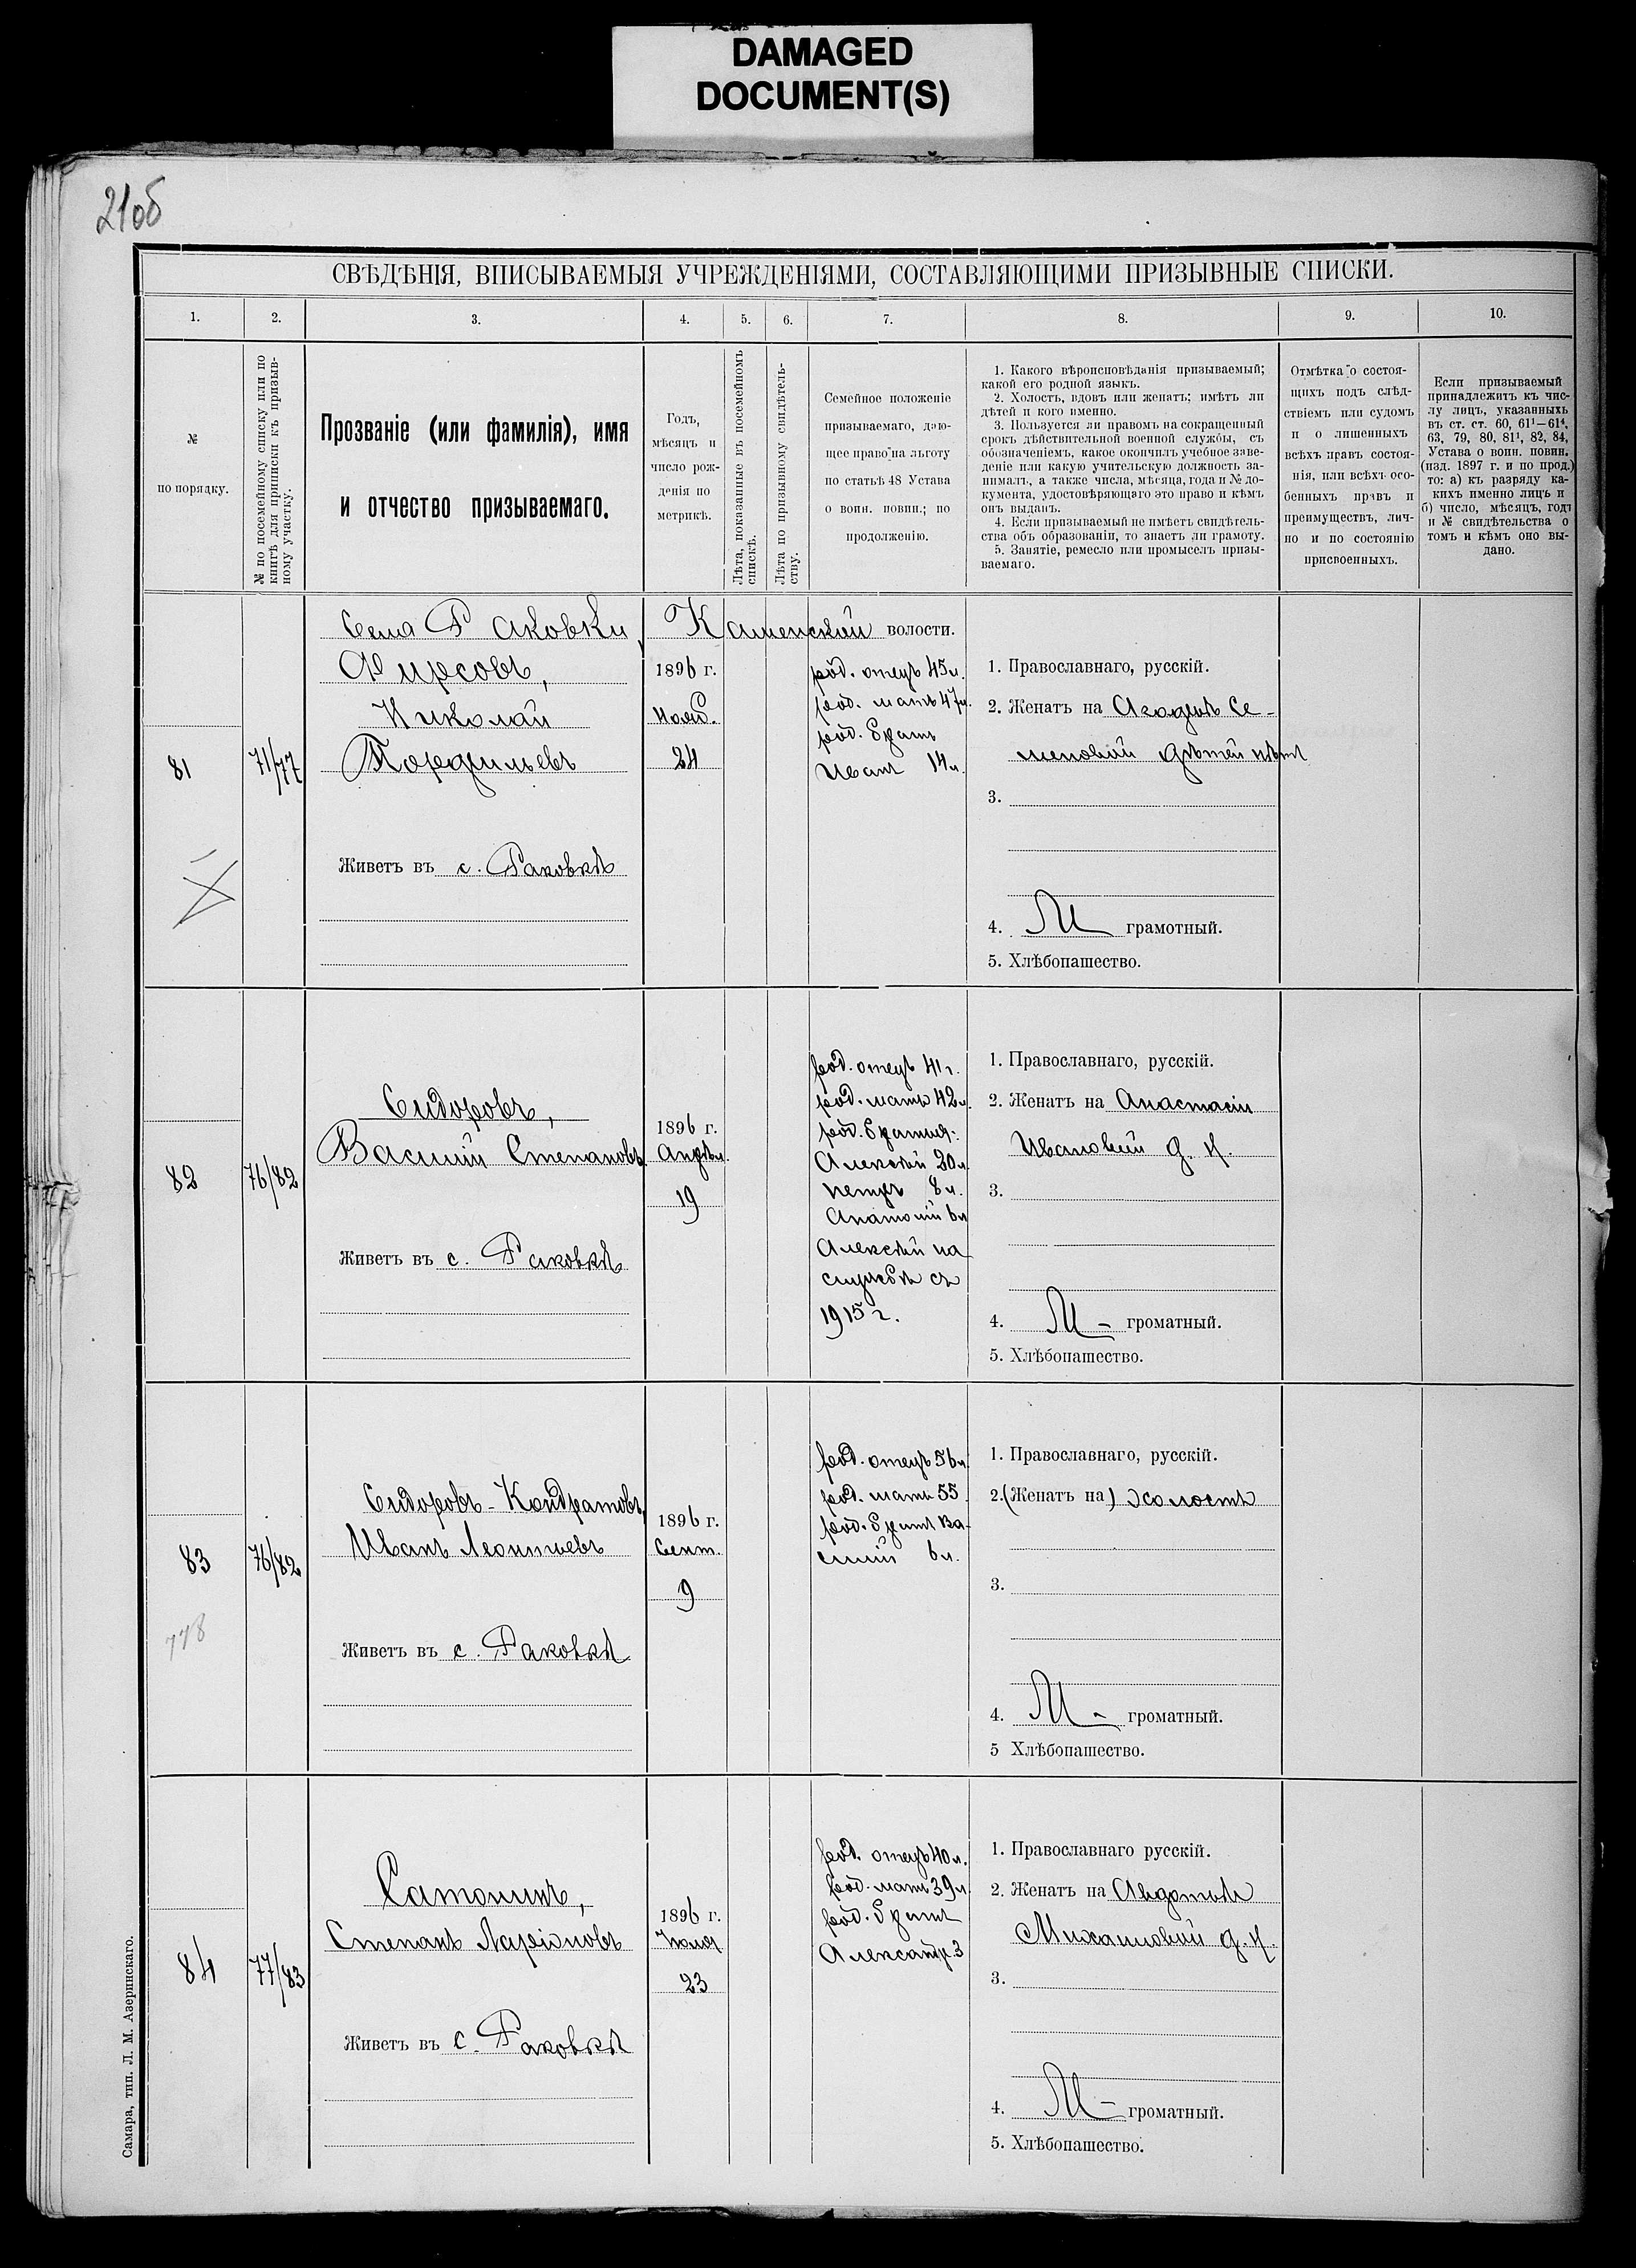 DAMAGED
DOCUMENT(S)
21об
СВѢДѢНІЯ, ВПИСЫВАЕМЫЯ УЧРЕЖДЕНІЯМИ, СОСТАВЛЯЮЩИМИ ПРИЗЫВНЫЕ СПИСКИ.
1. 2. 3. 4. 5. 6. 7. 8. 9. 10.
№
по порядку.
№ по посемейному списку или по
книгѣ для приписки къ призыв-
ному участку.
Прозваніе (или фамилія), имя
и отчество призываемаго.
Годъ,
мѣсяцъ и
число рож-
денія по
метрикѣ.
Лѣта, показанные въ посемейномъ
спискѣ.
Лѣта по призывному свидѣтель-
ству.
Семейное положеніе
призываемаго, даю-
щее право на льготу
по статьѣ 48 Устава
о воин. повин.; по
продолженію.
1. Какого вѣроисповѣданія призываемый;
какой его родной языкъ.
2. Холостъ, вдовъ или женатъ; имѣтъ ли
дѣтей и кого именно.
3. Пользуется ли правомъ на сокращенный
срокъ дѣйствительной военной службы, съ
обозначеніемъ, какое окончилъ учебное заве-
деніе или какую учительскую должность за-
нималъ, а также числа, мѣсяца, года и № до-
кумента, удостовѣряющаго это право и кѣмъ
онъ выданъ.
4. Если призываемый не имѣетъ свидѣтель-
ства объ образованіи, то знаетъ ли грамоту.
5. Занятіе, ремесло или промыселъ призы-
ваемаго.
Отмѣтка о состоя-
щихъ подъ слѣд-
ствіемъ или судомъ
и о лишенныхъ
всѣхъ правъ состоя-
нія, или всѣхъ осо-
бенныхъ правъ и
преимуществъ, лич-
но и по состоянію
присвоенныхъ.
Если призываемый
принадлежитъ къ чис-
лу лицъ, указанныхъ
въ ст. ст. 60, 61¹—61⁴,
63, 79, 80, 81¹, 82, 84,
Устава о воин. повин.
(изд. 1897 г. и по прод.)
то: а) къ разряду ка-
кихъ именно лицъ и
б) число, мѣсяцъ, годъ
и № свидѣтельства о
томъ и кѣмъ оно вы-
дано.
Села Раковки, Каменской волости.
81
71/77
Фирсовъ,
Николай
Порфильевъ
Живетъ въ с. Раковкѣ
1896 г.
Нояб.
24
род. отецъ 45 л.
род. мать 47 л.
род. братъ
Иванъ 14 л.
1. Православнаго, русскій.
2. Женатъ на Агафьѣ Се-
меновой дѣтей нѣтъ
3.
4. М грамотный.
5. Хлѣбопашество.
82
76/82
Сидоровъ,
Василій Степановъ
Живетъ въ с. Раковкѣ
1896 г.
Апрѣл.
19
род. отецъ 41 г.
род. мать 42 л.
род. братья:
Алексѣй 20 л.
Петръ 8 л.
Анатолій 6 л.
Алексѣй на
службѣ съ
1915 г.
1. Православнаго, русскій.
2. Женатъ на Анастасіи
Ивановой д. н.
3.
4. М - громатный.
5. Хлѣбопашество.
83
76/82
778
Сидоровъ-Кондратовъ,
Иванъ Леонтьевъ
Живетъ въ с. Раковкѣ
1896 г.
Сент.
9
род. отецъ 56 л.
род. мать 55
род. братъ Ва-
силій 6 л.
1. Православнаго, русскій.
2. (Женатъ на) холостъ
3.
4. М - громатный.
5 Хлѣбопашество.
84
77/83
Сатонинъ,
Степанъ Ларіоновъ
Живетъ въ с. Раковкѣ
1896 г.
Іюля
23
род. отецъ 40 л.
род. мать 39 л.
род. братъ
Александръ 3
1. Православнаго русскій.
2. Женатъ на Авдотьѣ
Михайловой д. н.
3.
4. М - громатный.
5. Хлѣбопашество.
Самара, тип. Л. М. Азеринскаго.